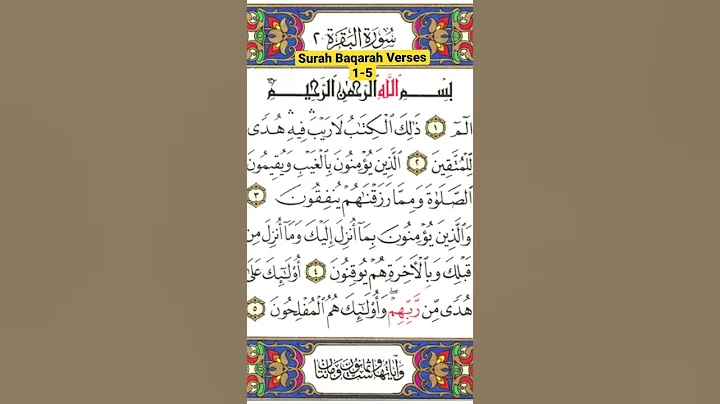 سُورَةُ الْبَقَرَةِ ٢
Surah Baqarah Verses
1-5
بِسْمِ اللَّهِ الرَّحْمَٰنِ الرَّحِيمِ
الٓمٓ ١ ذَٰلِكَ الْكِتَابُ لَا رَيْبَ ۛ فِيهِ ۛ هُدًى
لِّلْمُتَّقِينَ ٢ الَّذِينَ يُؤْمِنُونَ بِالْغَيْبِ وَيُقِيمُونَ
الصَّلَوٰةَ وَمِمَّا رَزَقْنَاهُمْ يُنفِقُونَ ٣
وَالَّذِينَ يُؤْمِنُونَ بِمَآ أُنزِلَ إِلَيْكَ وَمَآ أُنزِلَ مِن
قَبْلِكَ وَبِالْأَخِرَةِ هُمْ يُوقِنُونَ ٤ أُوْلَٰٓئِكَ عَلَىٰ
هُدًى مِّن رَّبِّهِمْ ۖ وَأُوْلَٰٓئِكَ هُمُ الْمُفْلِحُونَ ٥
وَآيَاتُهَا سِتٌّ وَثَمَانُونَ وَمِائَتَانِ